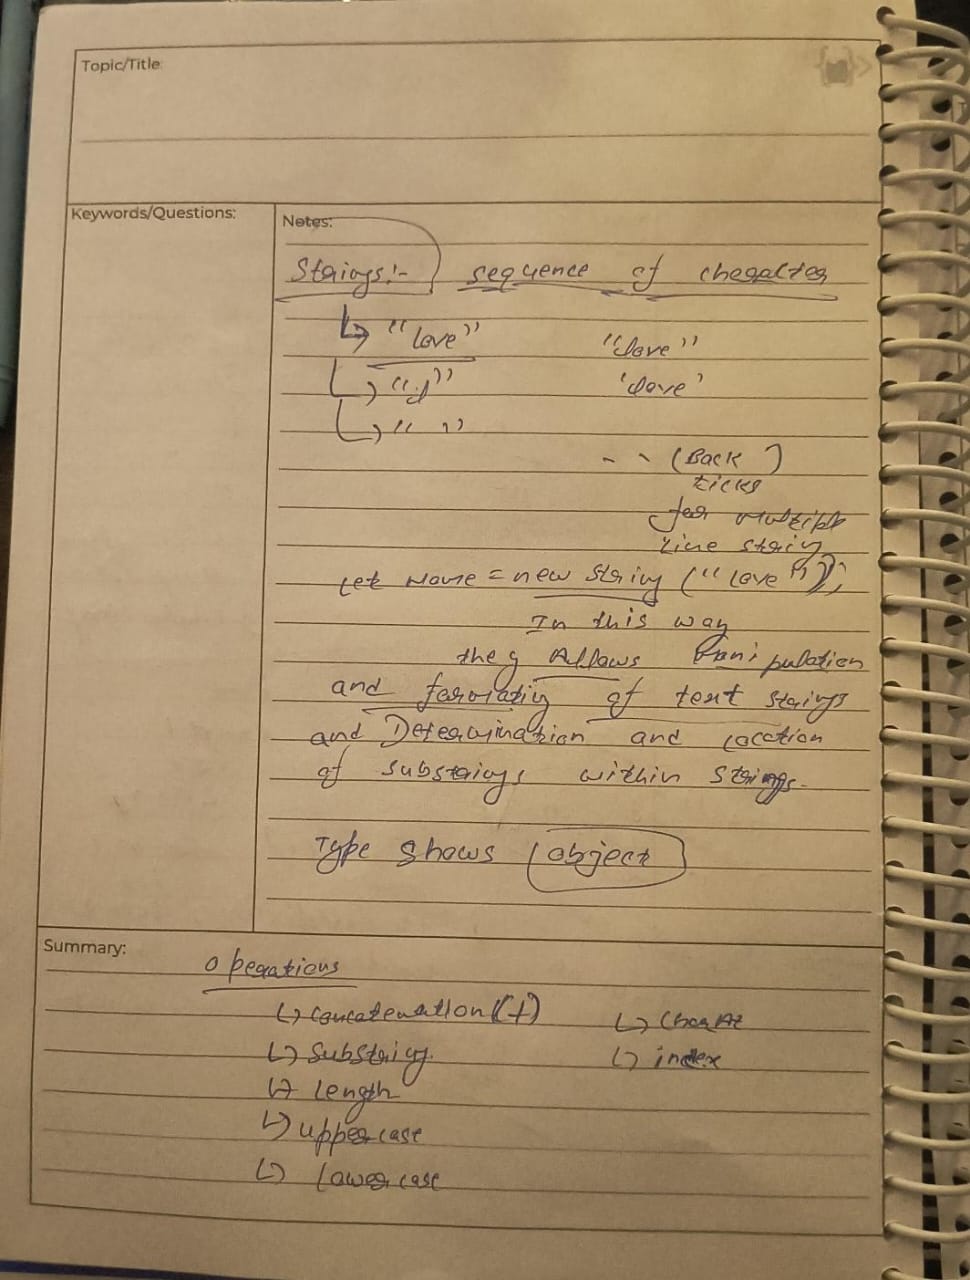 Topic/Title:
Keywords/Questions:
Notes:
Strings:- sequence of
"love" "love"
'love'
" "
` ` (Back ticks
for multiple
line string
let Name = new String ("love");
In this way
they Allows Manipulation
and formating of text strings
and Determination and location
of substrings within strings.
Type shows object
Summary:
operations
concatenation (+) CharAt
substring index
length
uppercase
Lowercase